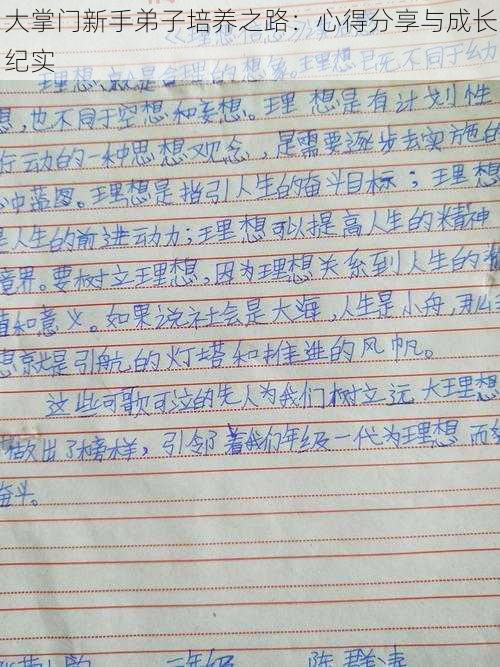 大掌门新手弟子培养之路：心得分享与成长
纪实
理想,就是合理的想象。理想既不同于幻
想,也不同于空想和妄想。理想是有计划性
行动的一种思想观念,是需要逐步去实施的
心中蓝图。理想是指引人生的奋斗目标；理想
是人生的前进动力；理想可以提高人生的精神
境界。要树立理想,因为理想关系到人生的
值和意义。如果说社会是大海,人生是小舟,那么
想就是引航的灯塔和推进的风帆。
这些可歌可泣的先人为我们树立远大理想
做出了榜样,引领着我们年级一代为理想而
奋斗。
二年级
陈